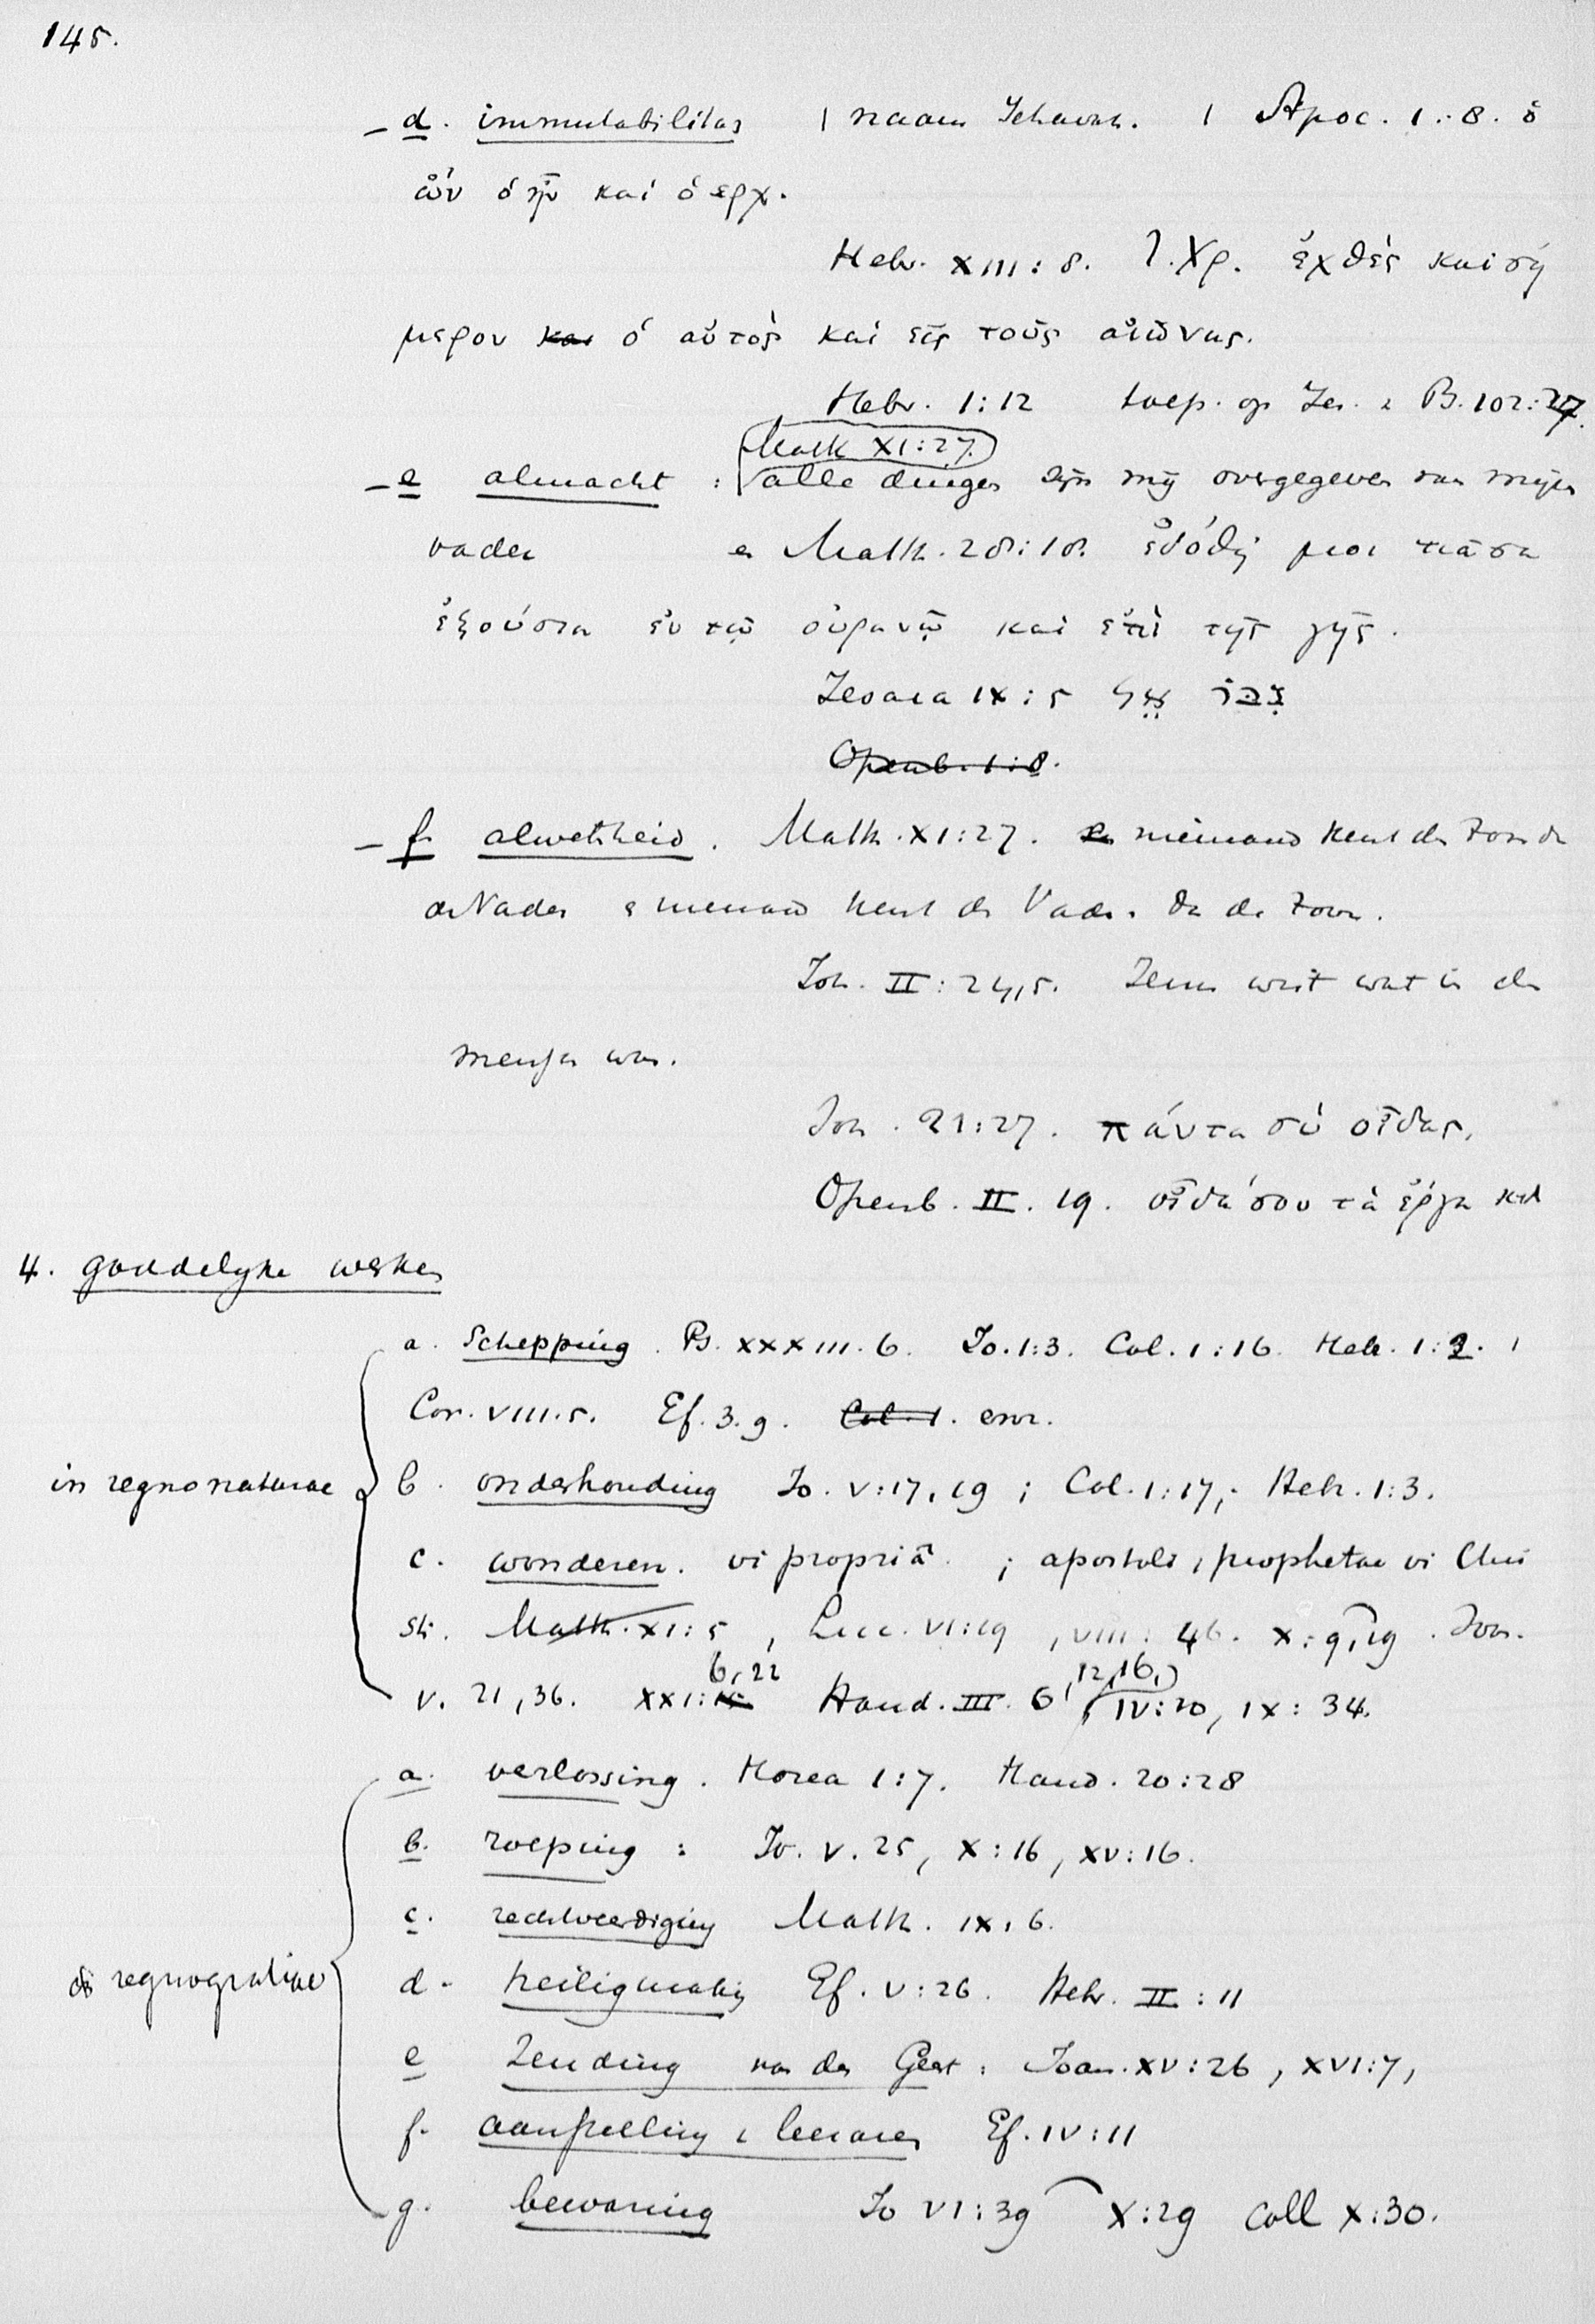 145.
d. immutabilitas | naam Jehovah. | Apoc. 1:8. ὁ
ὤν ὁ ἦν καὶ ὁ ερχ.
Hebr. XIII:8. Ἰ. Χρ. ἐχθές και σή
μερον και ὁ αὐτὸς καὶ εἰς τοὺς αἰῶνας.
Hebr. 1:12 toep. op Jes. Ps. 102:27.
Math XI:27.
e almacht : alle dingen zijn mij overgegeven van mijn
vader en Math. 28:18. ἐδόθη μοι πᾶσα
ἐξούσια ἐν τῷ οὐρανῷ καὶ ἐπὶ τῆς γῆς.
Jesaia IX:5 אֵל גִּבּוֹר
Openb. 1:8.
f. alwetendheid. Math. XI:27. en niemand kent den Zoon dan
de Vader en niemand kent den Vader dan de Zoon.
Joh. II:24,5. Jezus wist wat in den
mensch was.
Joh. 21:27. πάντα σὺ οἶδας.
Openb. II. 19. οἶδά σου τὰ ἔργα κτλ
4. goddelyke werken
a. Schepping. Ps. XXXIII.6. Jo. 1:3. Col. 1:16. Hebr. 1:2. 1
Cor. VIII.5. Ef. 3.9. Col. 1. enz.
in regno naturae
b. onderhouding Jo. V:17,19; Col. 1:17; Hebr. 1:3.
c. wonderen. vi propriâ. ; apostoli, prophetae vi Chri
sti. Math. XI:5, Luc. VI:19, VIII:46. X:9,19. Joh.
6,22 12,16,
V. 21,36. XXI: Hand. III. 6, IV:10, IX:34.
a. verlossing. Hosea 1:7. Hand. 20:28
b. roeping: Jo. V. 25, X:16, XV:16.
c. rechtvaerdiging Math. IX,6.
regno gratiae
d. heiligmaking Ef. V:26. Hebr. II:11
e Zending van den Geest: Joan. XV:26, XVI:7,
f. aanstelling v leeraren Ef. IV:11
g. bewaring Jo VI:39 X:29 coll X:30.